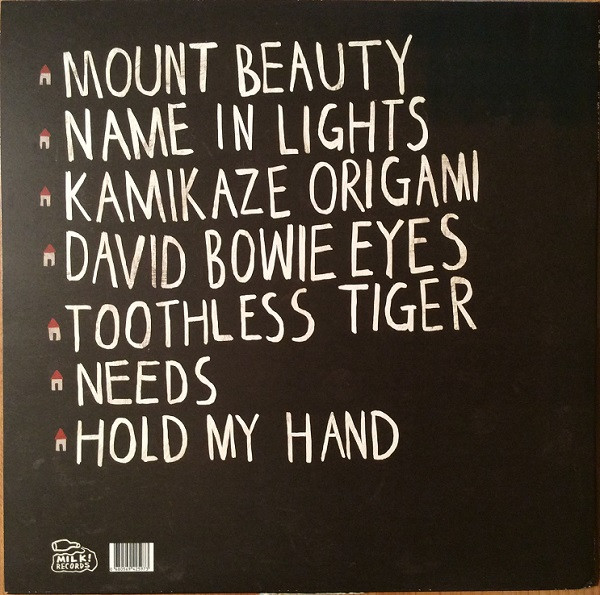 MOUNT BEAUTY
NAME IN LIGHTS
KAMIKAZE ORIGAMI
DAVID BOWIE EYES
TOOTHLESS TIGER
NEEDS
HOLD MY HAND
MILK!
RECORDS